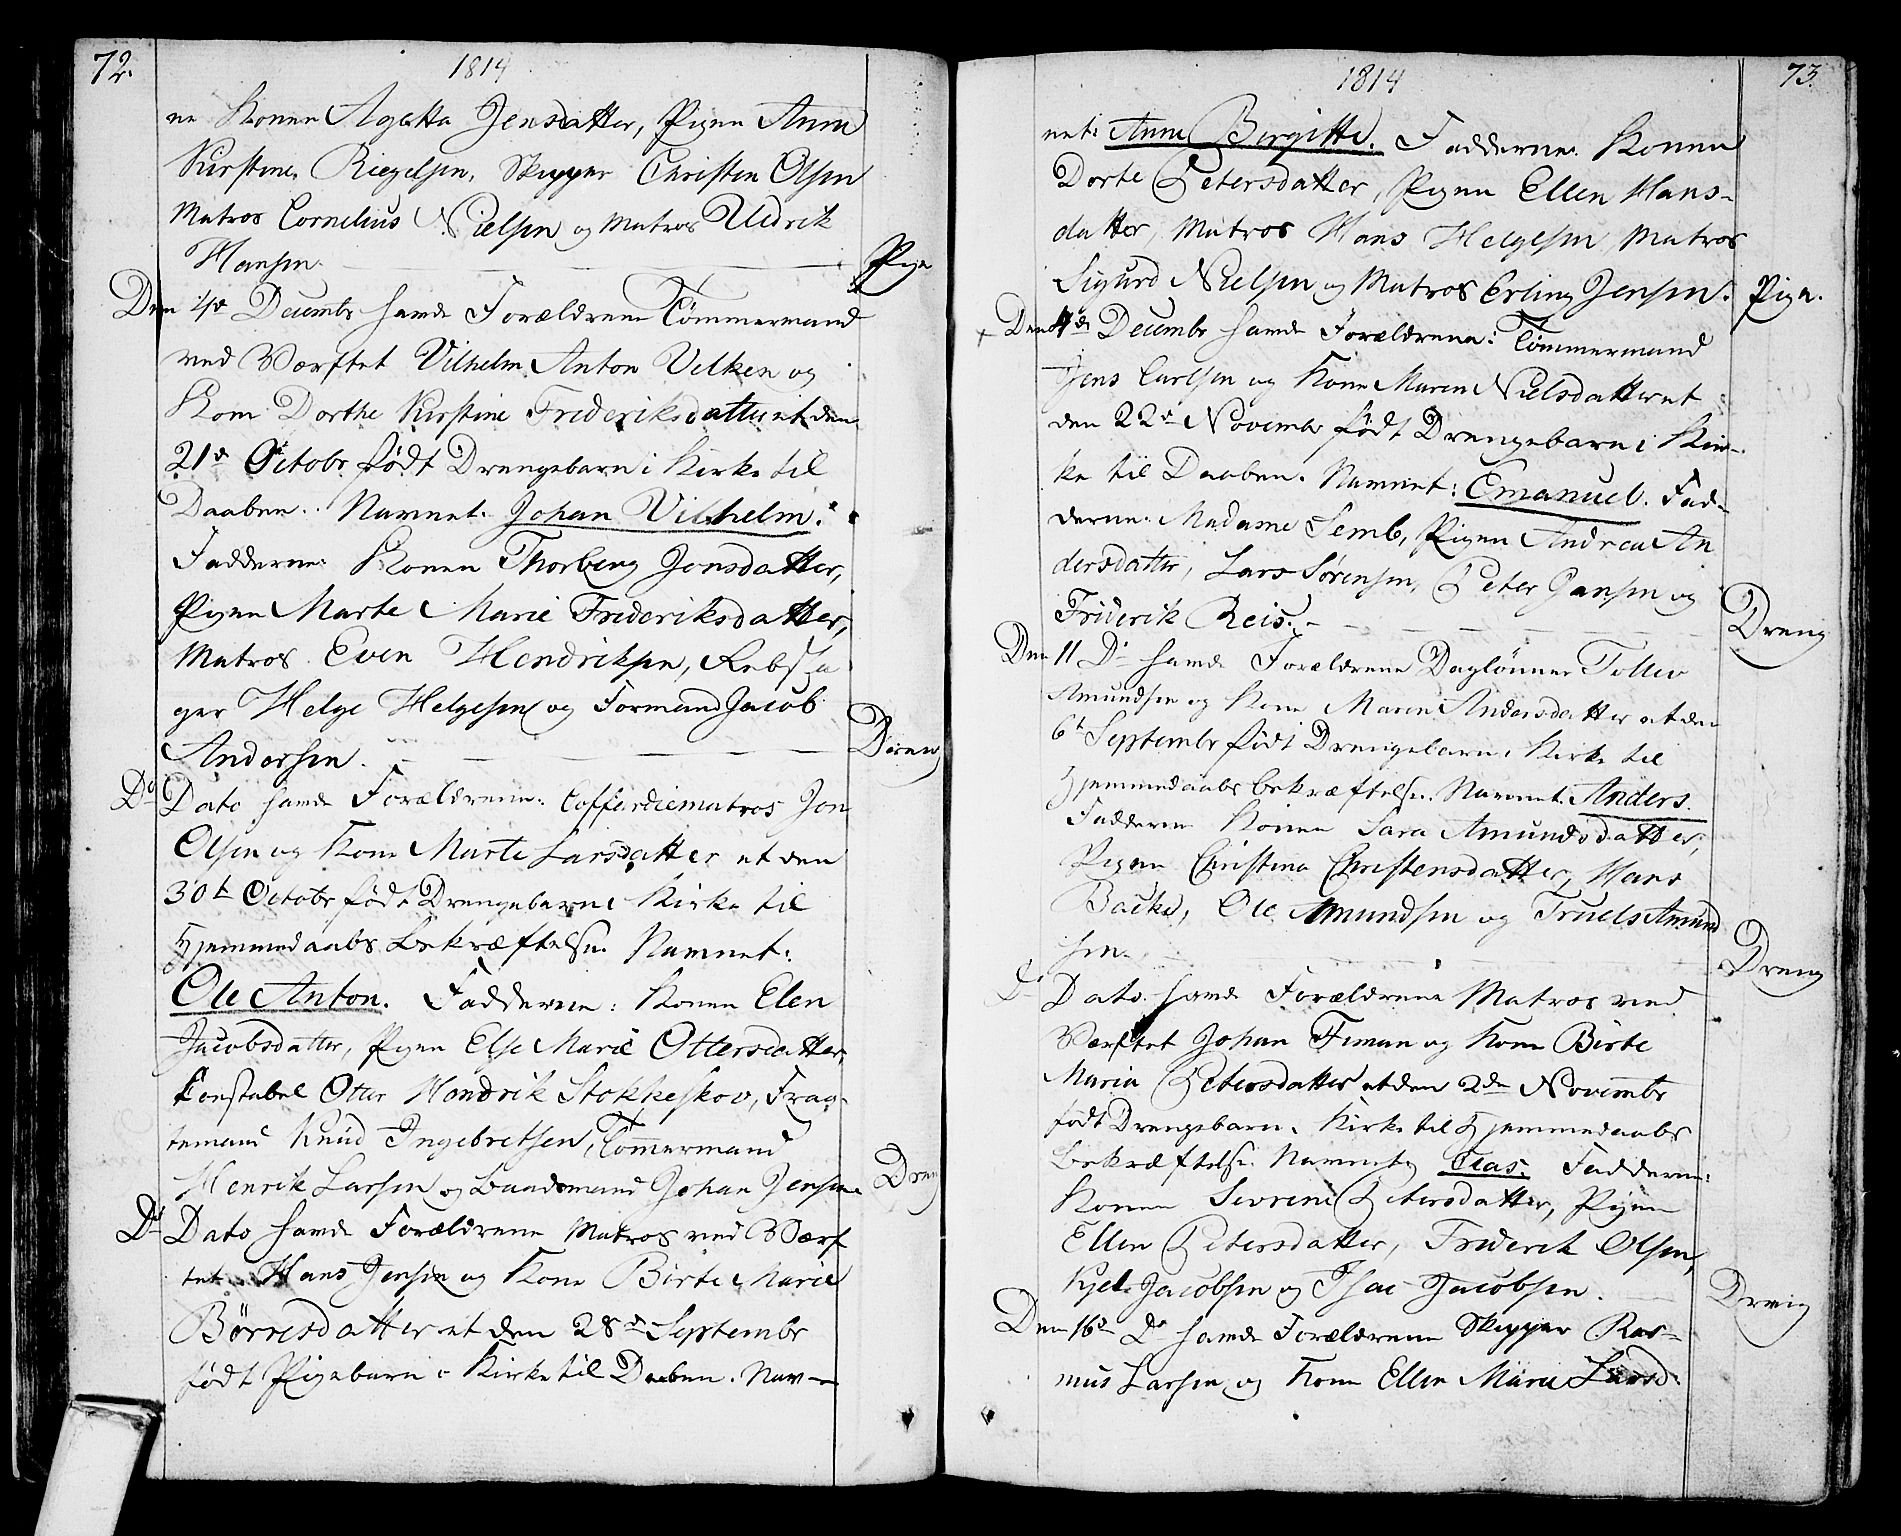 72.
1814
ne Konen Agetta Jensdatter, Pigen Anne
Kirstine Riegelsen, Skipper Christen Olsen
Matros Cornelius Nielsen og Matros Uldrik
Hansen.
Pige
Den 4de Decembr havde Forældrene Tömmermand
ved Værftet Vilhelm Anton Velken og
Kone Dorthe Kirstine Frideriksdatter et den
21de Octobr. födt Drengebarn i Kirke til
Daaben. Navnet. Johan Vilhelm.
Fadderne: Konen Thorberg Jonsdatter,
Pigen Marte Marie Frideriksdatter,
Matros Even Hendriksen, Rebsla
ger Helge Helgesen og Formand Jacob
Andersen.
Dreng
Do Dato havde Forældrene: Cofferdiematros Jon
Olsen og Kone Marte Larsdatter et den
30te Octobr födt Drengebarn i Kirke til
Hjemmedaabs Bekræftelse. Navnet:
Ole Anton. Fadderne: Konen Elen
Jacobsdatter, Pigen Else Marie Ottersdatter,
Konstabel Otter Hendrik Stokkeskov, Frag-
temand Knud Ingebretsen, Tömmermand
Henrik Larsen og Baadsmand Johan Jensen
Dreng
Do Dato havde Forældrene Matros ved Værf
tet Hans Jensen og Kone Birte Marie
Börresdatter et den 28de Septembr
födt Pigebarn i Kirke til Daaben. Nav-
73.
1814
net: Anne Birgitte. Fadderne. Konen
Dorte Petersdatter, Pigen Ellen Hans-
datter, Matros Hans Helgesen, Matros
Sigurd Nielsen og Matros Erling Jensen.
Pige.
+ Den 4de Decembr havde Forældrene: Tömmermand
Jens Carlsen og Kone Maren Nielsdatter et
den 22de Novembr födt Drengebarn i Kir-
ke til Daaben. Navnet: Emanuel. Fad-
derne: Madame Semb, Pigen Andrea An
dersdatter, Lars Sörensen, Peter Hansen og
Friderik Reis.
Dreng
Den 11 Do havde Forældrene Daglönner Tollev
Amundsen og Kone Maren Andersdatter et den
6te Septembr födt Drengebarn i Kirke til
Hjemmedaabs bekræftelse. Navnet. Anders.
Fadderne Konen Sara Amundsdatter,
Pigen Christina Christensdatter, Hans
Backe, Ole Amundsen og Truels Amund
sen.
Dreng
Do Dato havde Forældrene Matros ved
Værftet Johan Timan og Kone Birte
Maria Petersdatter et den 2den Novembr
födt Drengebarn i Kirke til Hjemmedaabs
Bekræftelse. Navnet Clas. Fadderne:
Konen Sevrine Petersdatter, Pigen
Ellen Petersdatter, Friderik Olsen,
Kjel Jacobsen og Isac Jacobsen.
Dreng
Den 16de Do havde Forældrene Skipper Ras-
mus Larsen og Kone Ellen Marie Larsd.